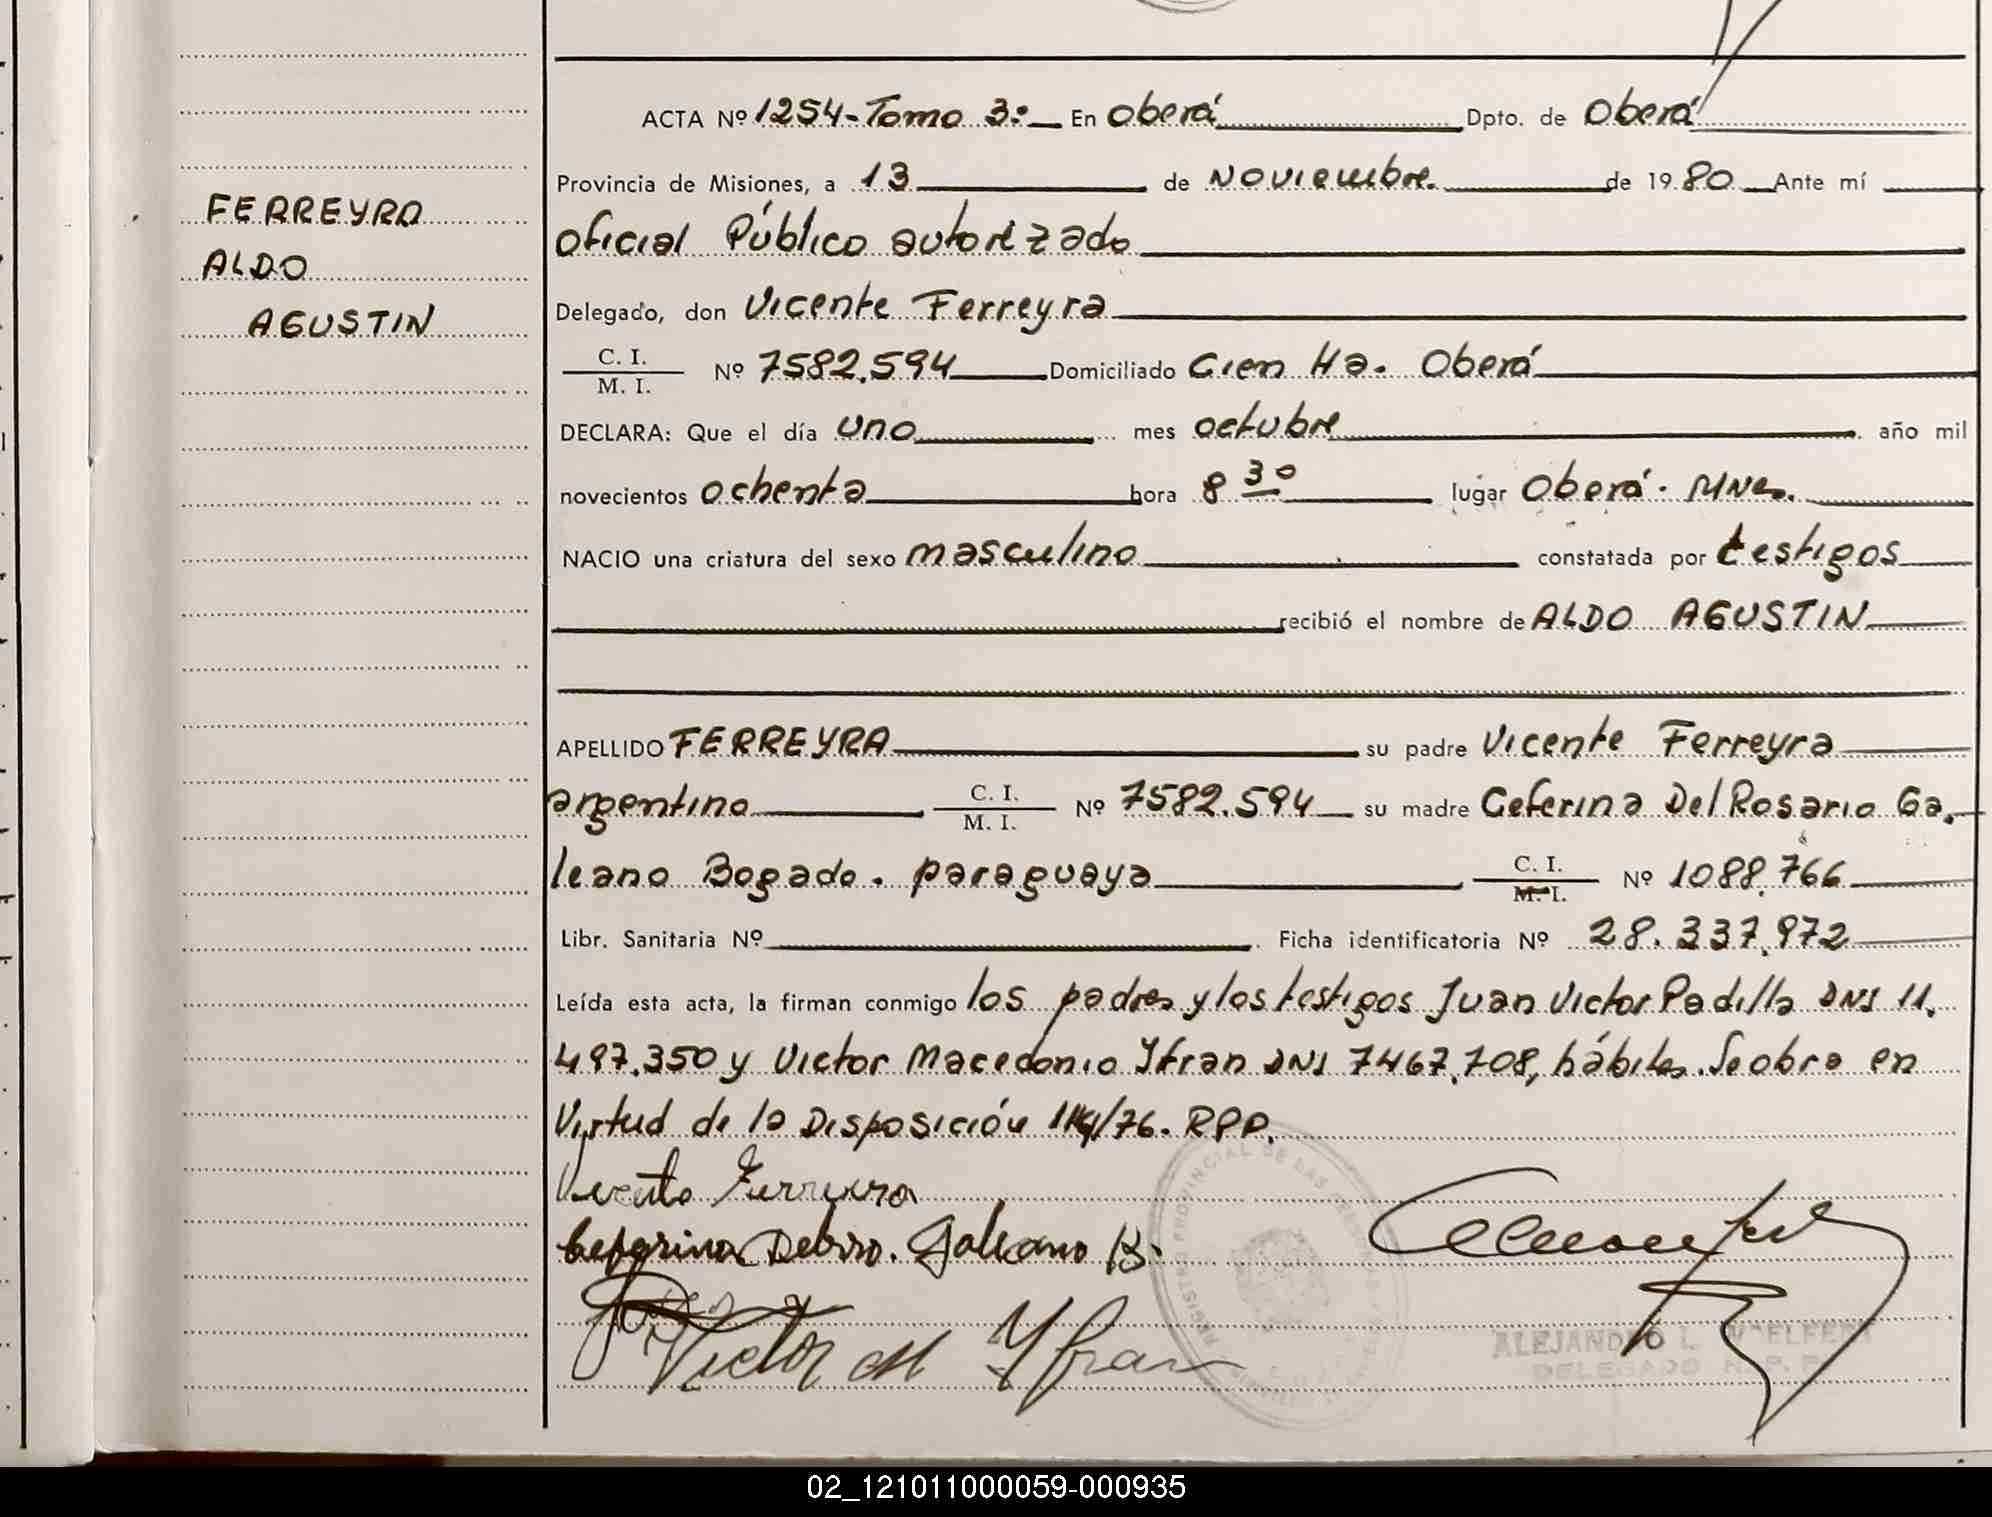 FERREYRA
ALDO
AGUSTIN
ACTA Nº 1254-Tomo 3:- En Oberá Dpto. de Oberá
Provincia de Misiones, a 13 de Noviembre. de 1980 Ante mí
Oficial Público autorizado
Delegado, don Vicente Ferreyra
C. I.
M. I. Nº 7582.594 Domiciliado Cien Ha. Oberá
DECLARA: Que el día uno mes octubre año mil
novecientos ochenta hora 8 30 lugar Oberá. Mnes.
NACIO una criatura del sexo masculino constatada por testigos
recibió el nombre de ALDO AGUSTIN
APELLIDO FERREYRA su padre Vicente Ferreyra
argentino C. I.
M. I. Nº 7582.594 su madre Ceferina Del Rosario Ga.
leano Bogado. paraguaya C. I.
M. I. Nº 1088.766
Libr. Sanitaria Nº Ficha identificatoria Nº 28.337.972
Leída esta acta, la firman conmigo los padres y los testigos Juan Victor Padilla DNI 11.
497.350 y Victor Macedonio Yfran DNI 7467.708, hábiles. Se obra en
Virtud de la Disposición /76. RPP.
Vicente Ferreyra
Ceferina Delrro. Galeano B.
Victor M Yfran
REGISTRO PROVINCIAL DE LAS PERSONAS
ALEJANDRO L.
DELEGADO R. P. P.
02_121011000059-000935